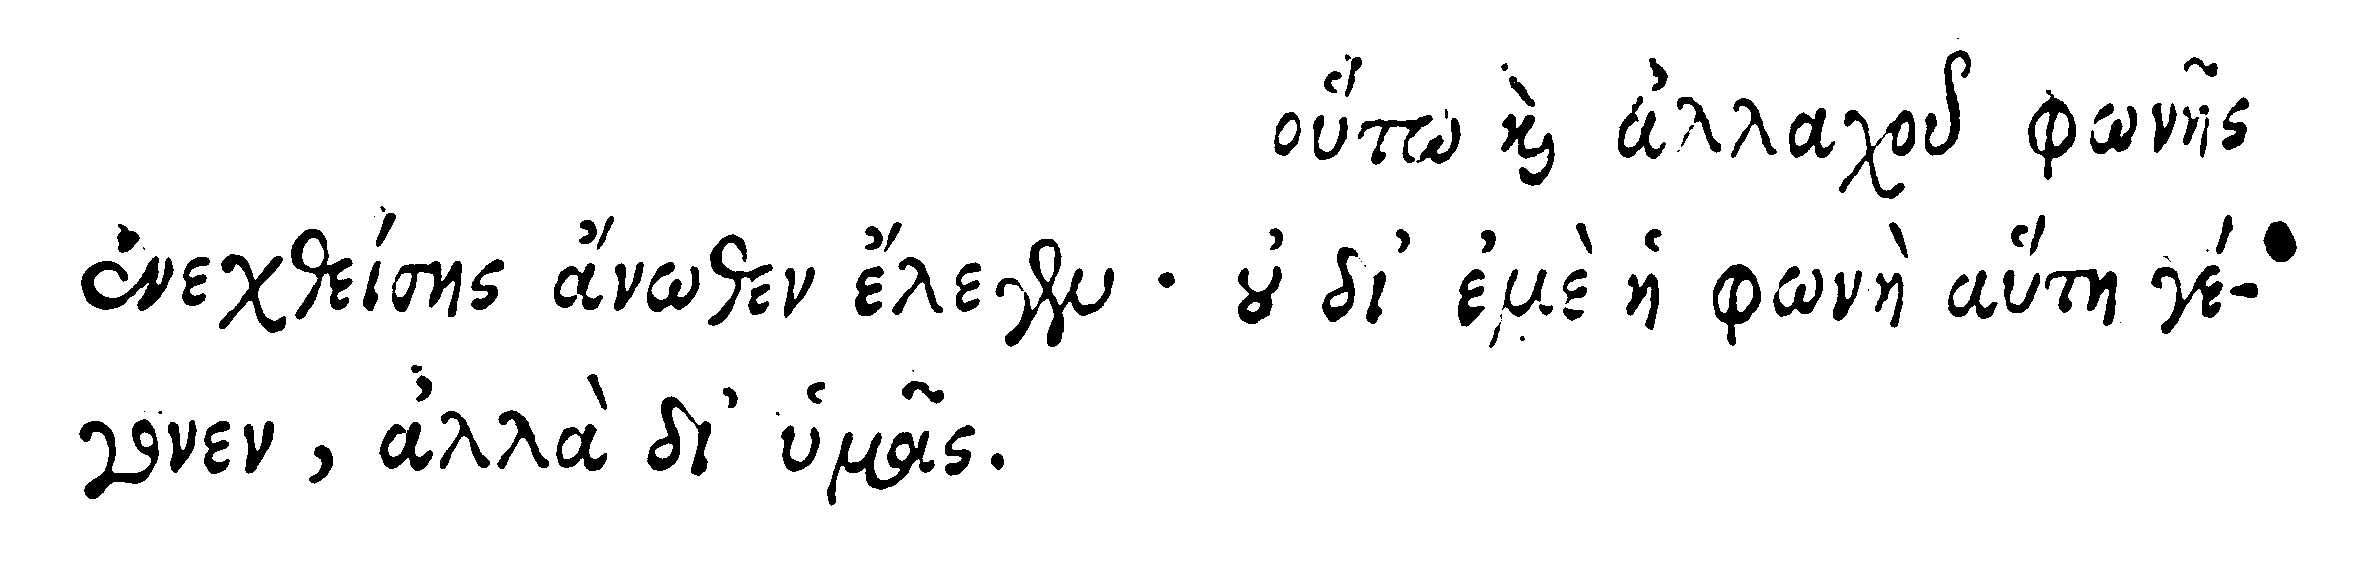 οὕτω καὶ ἀλλαχοῦ φωνῆς
ἐνεχθείσης ἄνωθεν ἔλεγεν · οὐ δι' ἐμὲ ἡ φωνὴ αὕτη γέ-
γονεν, ἀλλὰ δι' ὑμᾶς.